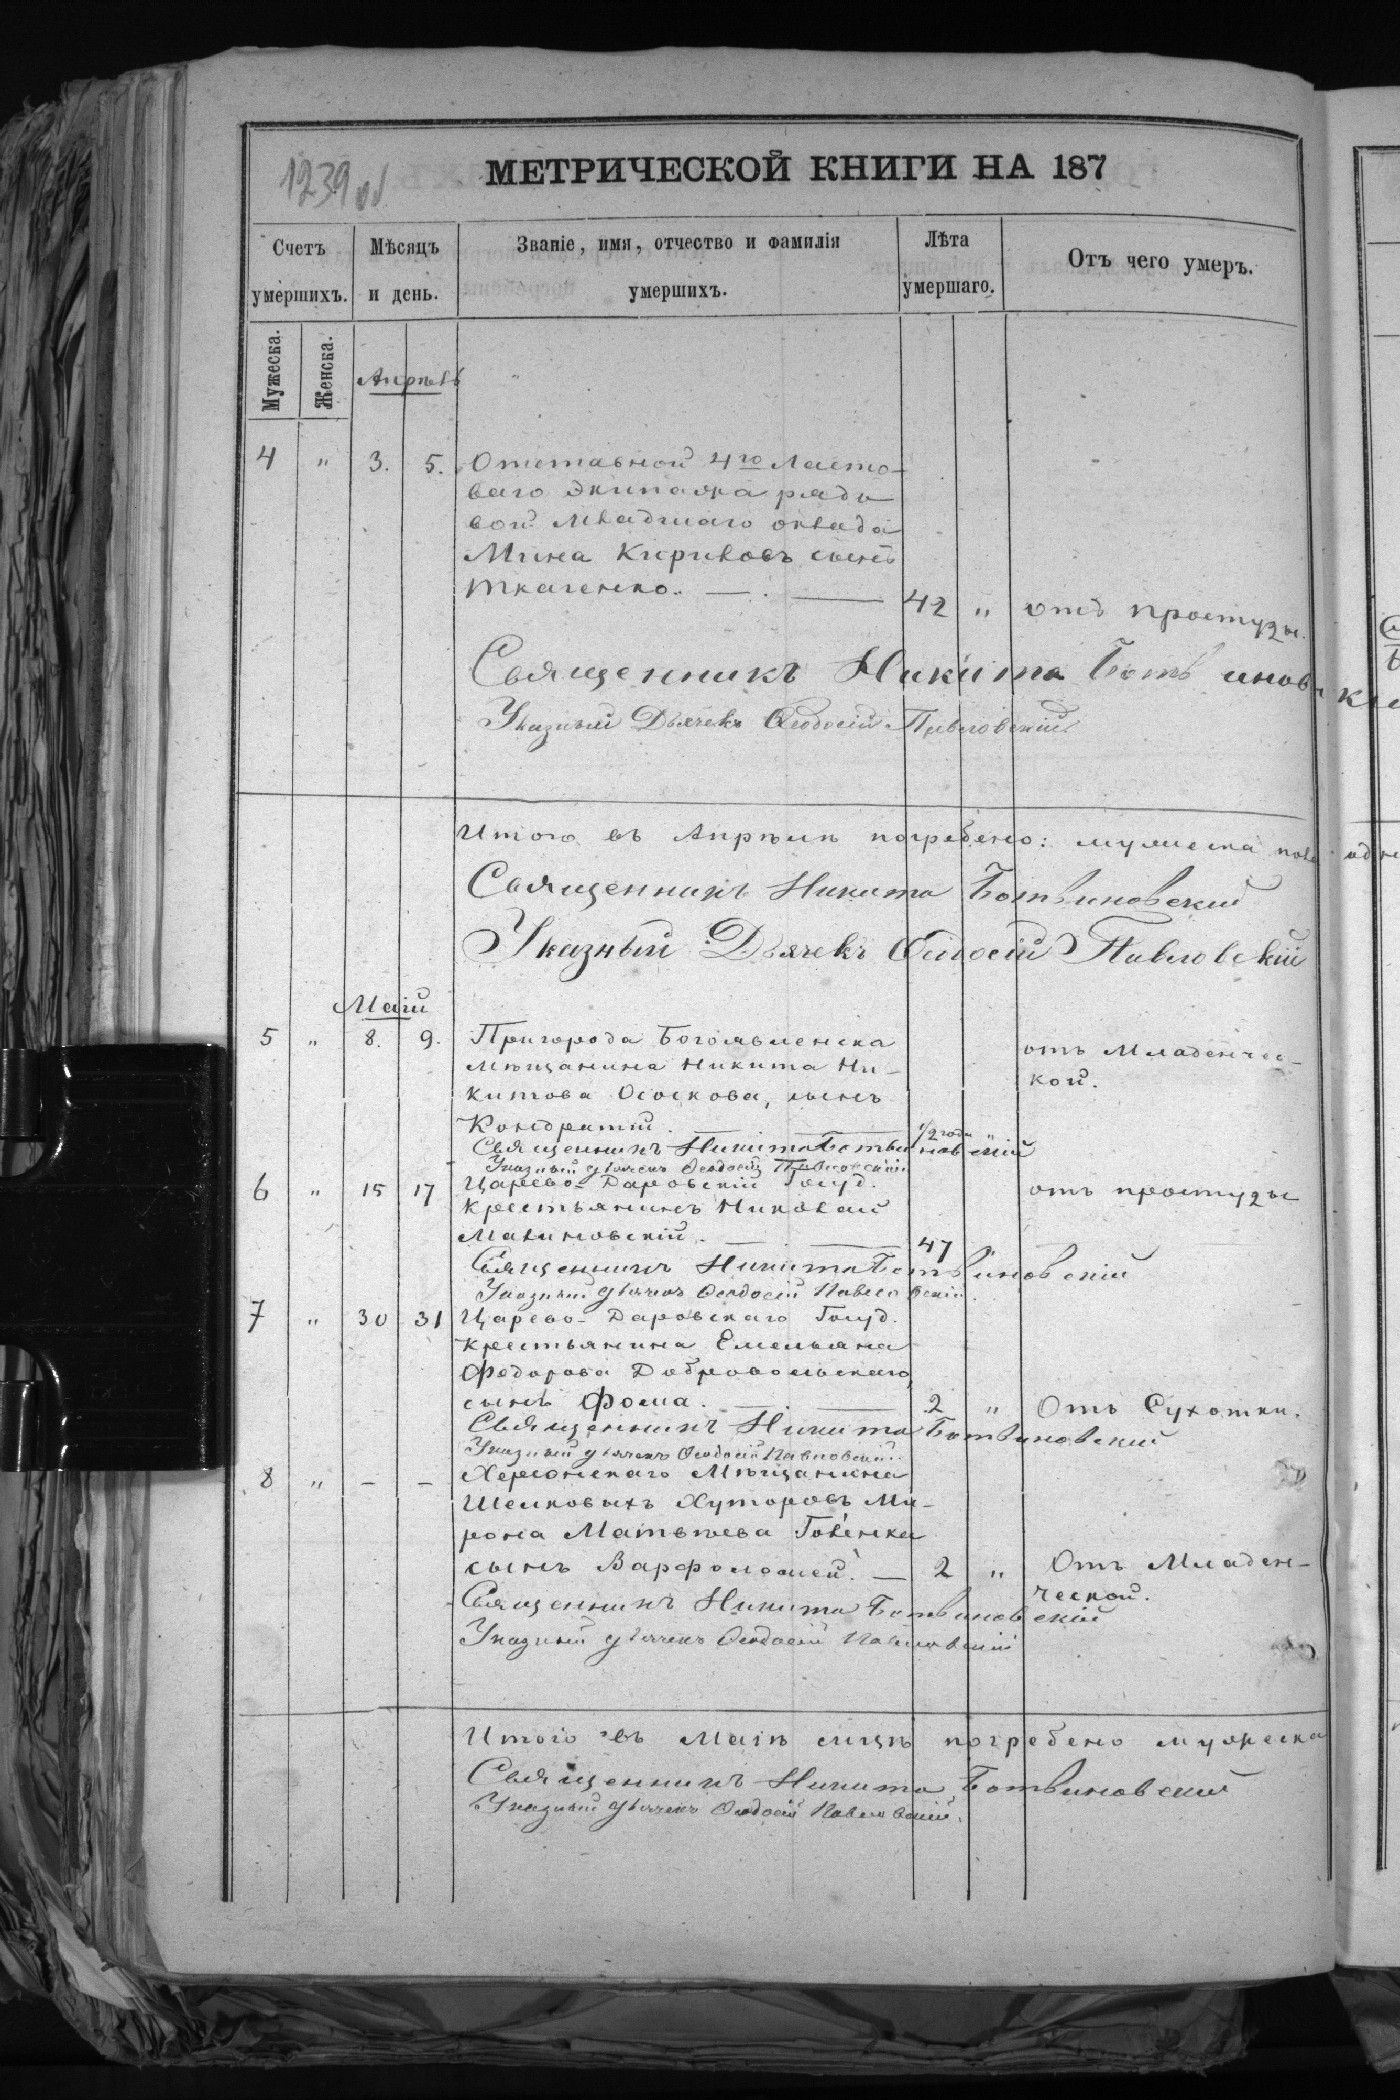 1239 об
МЕТРИЧЕСКОЙ КНИГИ НА 187
Счетъ умершихъ.
Мѣсяцъ и день.
Званіе, имя, отчество и фамилія умершихъ.
Лѣта умершаго.
Отъ чего умеръ.
Мужеска.
Женска.
Апрѣль
4 " 3. 5. Отставной 4го Ласто-
ваго Экипажа рядо
вой младшаго оклада
Мина Кириловъ сынъ
Ткаченко. 42 " отъ простуды.
Священникъ Никита Ботвиновскій
Указный Дьячекъ Ѳеодосій Павловскій
Итого въ Апрѣлѣ погребено: мужеска пола
Священникъ Никита Ботвиновский
Указный Дьячекъ Ѳеодосій Павловскій
Маій
5 " 8. 9. Пригорода Богоявленска
мѣщанина Никита Ни-
китова Ососкова, сынъ
Кондратій. 1/2 года " отъ Младенчес-
кой.
Священникъ Никита Ботвиновскій
Указный дьячекъ Ѳеодосій Павловскій
6 " 15 17 Царево-Даровскій Госуд.
крестьянинъ Николай
Малиновскій. 47 отъ простуды
Священникъ Никита Ботвиновскій
Указный дьячекъ Ѳеодосій Павловскій
7 " 30 31 Царево-Даровскаго Госуд.
крестьянина Емельяна
Федорова Добровольскаго,
сынъ Фома. 2 " Отъ Сухотки.
Священникъ Никита Ботвиновский
Указный дьячекъ Ѳеодосій Павловскій
8 " - - Херсонскаго Мѣщанина
Шелковыхъ Хуторовъ Ми-
рона Матвѣева Говенки
сынъ Варфоломей. 2 " Отъ Младен-
ческой.
Священникъ Никита Ботвиновскій
Указный дьячекъ Ѳеодосій Павловскій
Итого въ Маіѣ мцѣ погребено мужеска
Священникъ Никита Ботвиновский
Указный дьячекъ Ѳеодосій Павловскій.